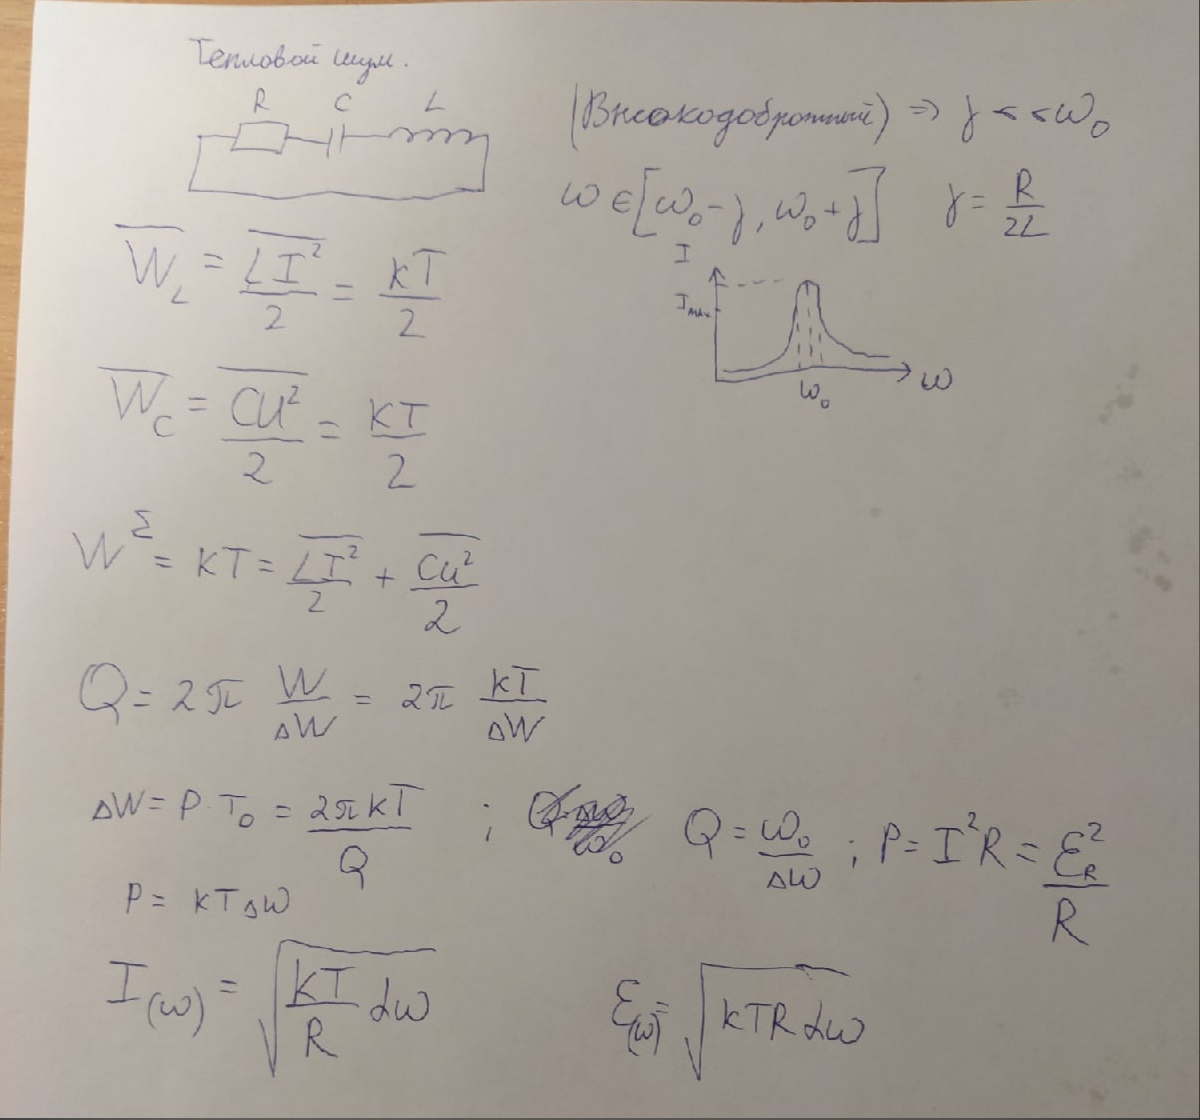 Тепловой шум.
R C L
(Высокодобротный) ⇒ γ << ω₀
ω ∈ [ω₀ - γ, ω₀ + γ] γ = R/2L
I
I max
ω₀
ω
W̅_L = \overline{LI²}/2 = kT/2
W̅_C = \overline{CU²}/2 = kT/2
W^Σ = kT = \overline{LI²}/2 + \overline{Cu²}/2
Q = 2π W/ΔW = 2π kT/ΔW
ΔW = P · T₀ = 2πkT/Q ; Q = ω₀/Δω ; P = I²R = ℰ_R²/R
P = kTΔω
I(ω) = √(kT/R dω)
ℰ(ω) = √(kTR dω)